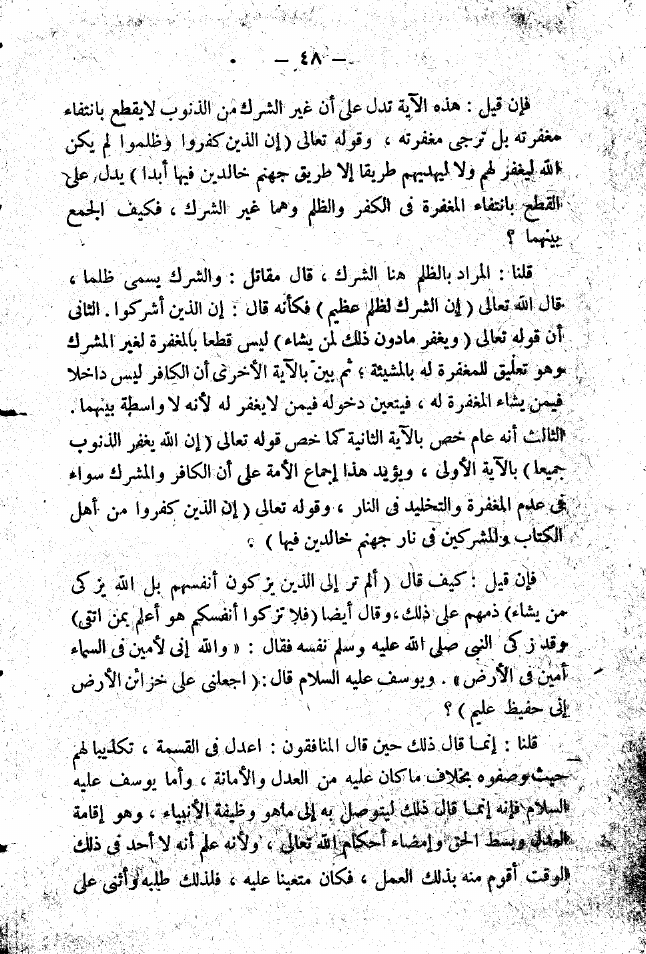 — ٤٨ —
فإن قيل : هذه الآية تدل على أن غير الشرك من الذنوب لا يقطع بانتفاء
مغفرته بل ترجى مغفرته ، وقوله تعالى ( إن الذين كفروا وظلموا لم يكن
الله ليغفر لهم ولا ليهديهم طريقا إلا طريق جهنم خالدين فيها أبدا ) يدل على
القطع بانتفاء المغفرة فى الكفر والظلم وهما غير الشرك ، فكيف الجمع
بينهما ؟
قلنا : المراد بالظلم هنا الشرك ، قال مقاتل : والشرك يسمى ظلما ،
قال الله تعالى ( إن الشرك لظلم عظيم ) فكأنه قال : إن الذين أشركوا . الثانى
أن قوله تعالى ( ويغفر مادون ذلك لمن يشاء ) ليس قطعا بالمغفرة لغير المشرك
وهو تعليق للمغفرة له بالمشيئة ؛ ثم بين بالآية الأخرى أن الكافر ليس داخلا
فيمن يشاء المغفرة له ، فيتعين دخوله فيمن لايغفر له لأنه لا واسطة بينهما .
الثالث أنه عام خص بالآية الثانية كما خص قوله تعالى ( إن الله يغفر الذنوب
جميعا ) بالآية الأولى ، ويؤيد هذا إجماع الأمة على أن الكافر والمشرك سواء
فى عدم المغفرة والتخليد فى النار ، وقوله تعالى ( إن الذين كفروا من أهل
الكتاب والمشركين فى نار جهنم خالدين فيها ) .
فإن قيل : كيف قال ( ألم تر إلى الذين يزكون أنفسهم بل الله يزكى
من يشاء ) ذمهم على ذلك ، وقال أيضا ( فلا تزكوا أنفسكم هو أعلم بمن اتقى )
وقد زكى النبى صلى الله عليه وسلم نفسه فقال : « والله إنى لأمين فى السماء
أمين فى الأرض » . ويوسف عليه السلام قال : ( اجعلنى على خزائن الأرض
إنى حفيظ عليم ) ؟
قلنا : إنما قال ذلك حين قال المنافقون : اعدل فى القسمة ، تكذيبا لهم
حيث وصفوه بخلاف ما كان عليه من العدل والأمانة ، وأما يوسف عليه
السلام فإنه إنما قال ذلك ليتوصل به إلى ماهو وظيفة الأنبياء ، وهو إقامة
العدل وبسط الحق وإمضاء أحكام الله تعالى ، ولأنه علم أنه لا أحد فى ذلك
الوقت أقوم منه بذلك العمل ، فكان متعينا عليه ، فلذلك طلبه وأثنى على